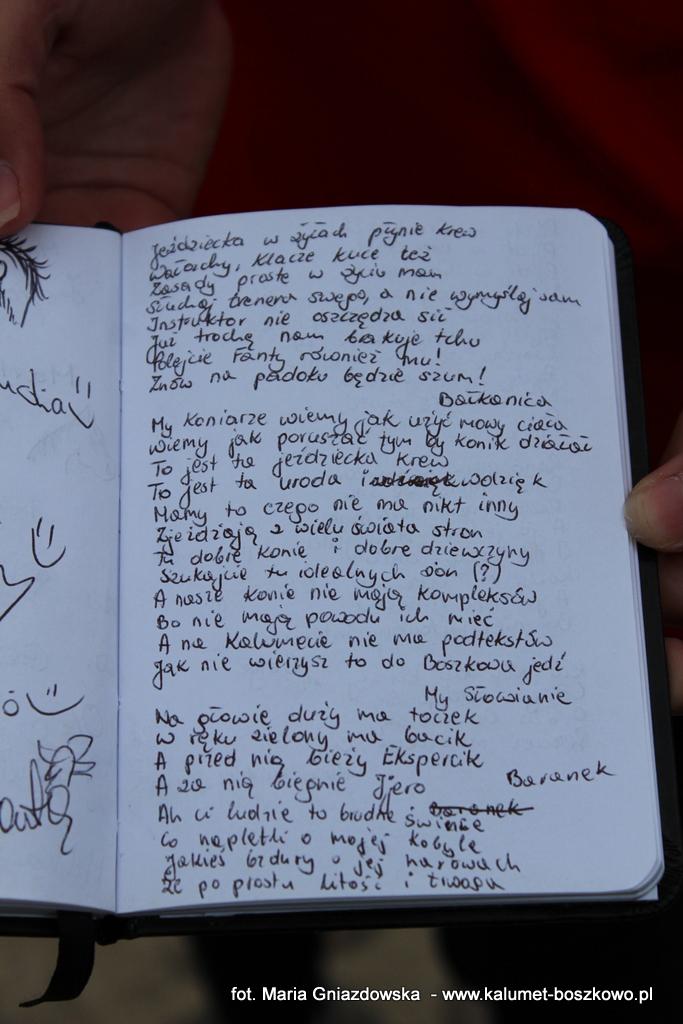 Jeździecka w żyłach płynie krew
Wałachy, klacze kuce też
Zasady proste w życiu mam
słuchaj trenera swego, a nie wymyślaj sam
Instruktor nie oszczędza sił
Już trochę nam brakuje tchu
Polejcie Fanty również mu!
Znów na padoku będzie szum!
Bałkanica
My Koniarze wiemy jak użyć mowy ciała
wiemy jak poruszać tym by konik działał
To jest ta jeździecka krew
To jest ta uroda i wdzięk
Mamy to czego nie ma nikt inny
Zjeżdżają z wielu świata stron
Tu dobre konie i dobre dziewczyny
Szukajcie tu idealnych (?)
A nasze konie nie mają kompleksów
Bo nie mają powodu ich mieć
A na Kalumecie nie ma podtekstów
Jak nie wierzysz to do Boszkowa jedź
My Słowianie
Na głowie duży ma toczek
W ręku zielony ma bacik
A przed nią bieży Ekspercik
A za nią biegnie Jjero
Baranek
Ah ci ludzie to brudne świnie
baranek
Co naplotli o mojej kobyle
Jakieś bzdury o jej narowach
Że po prostu litość i trwoga
udia
fot. Maria Gniazdowska - www.kalumet-boszkowo.pl